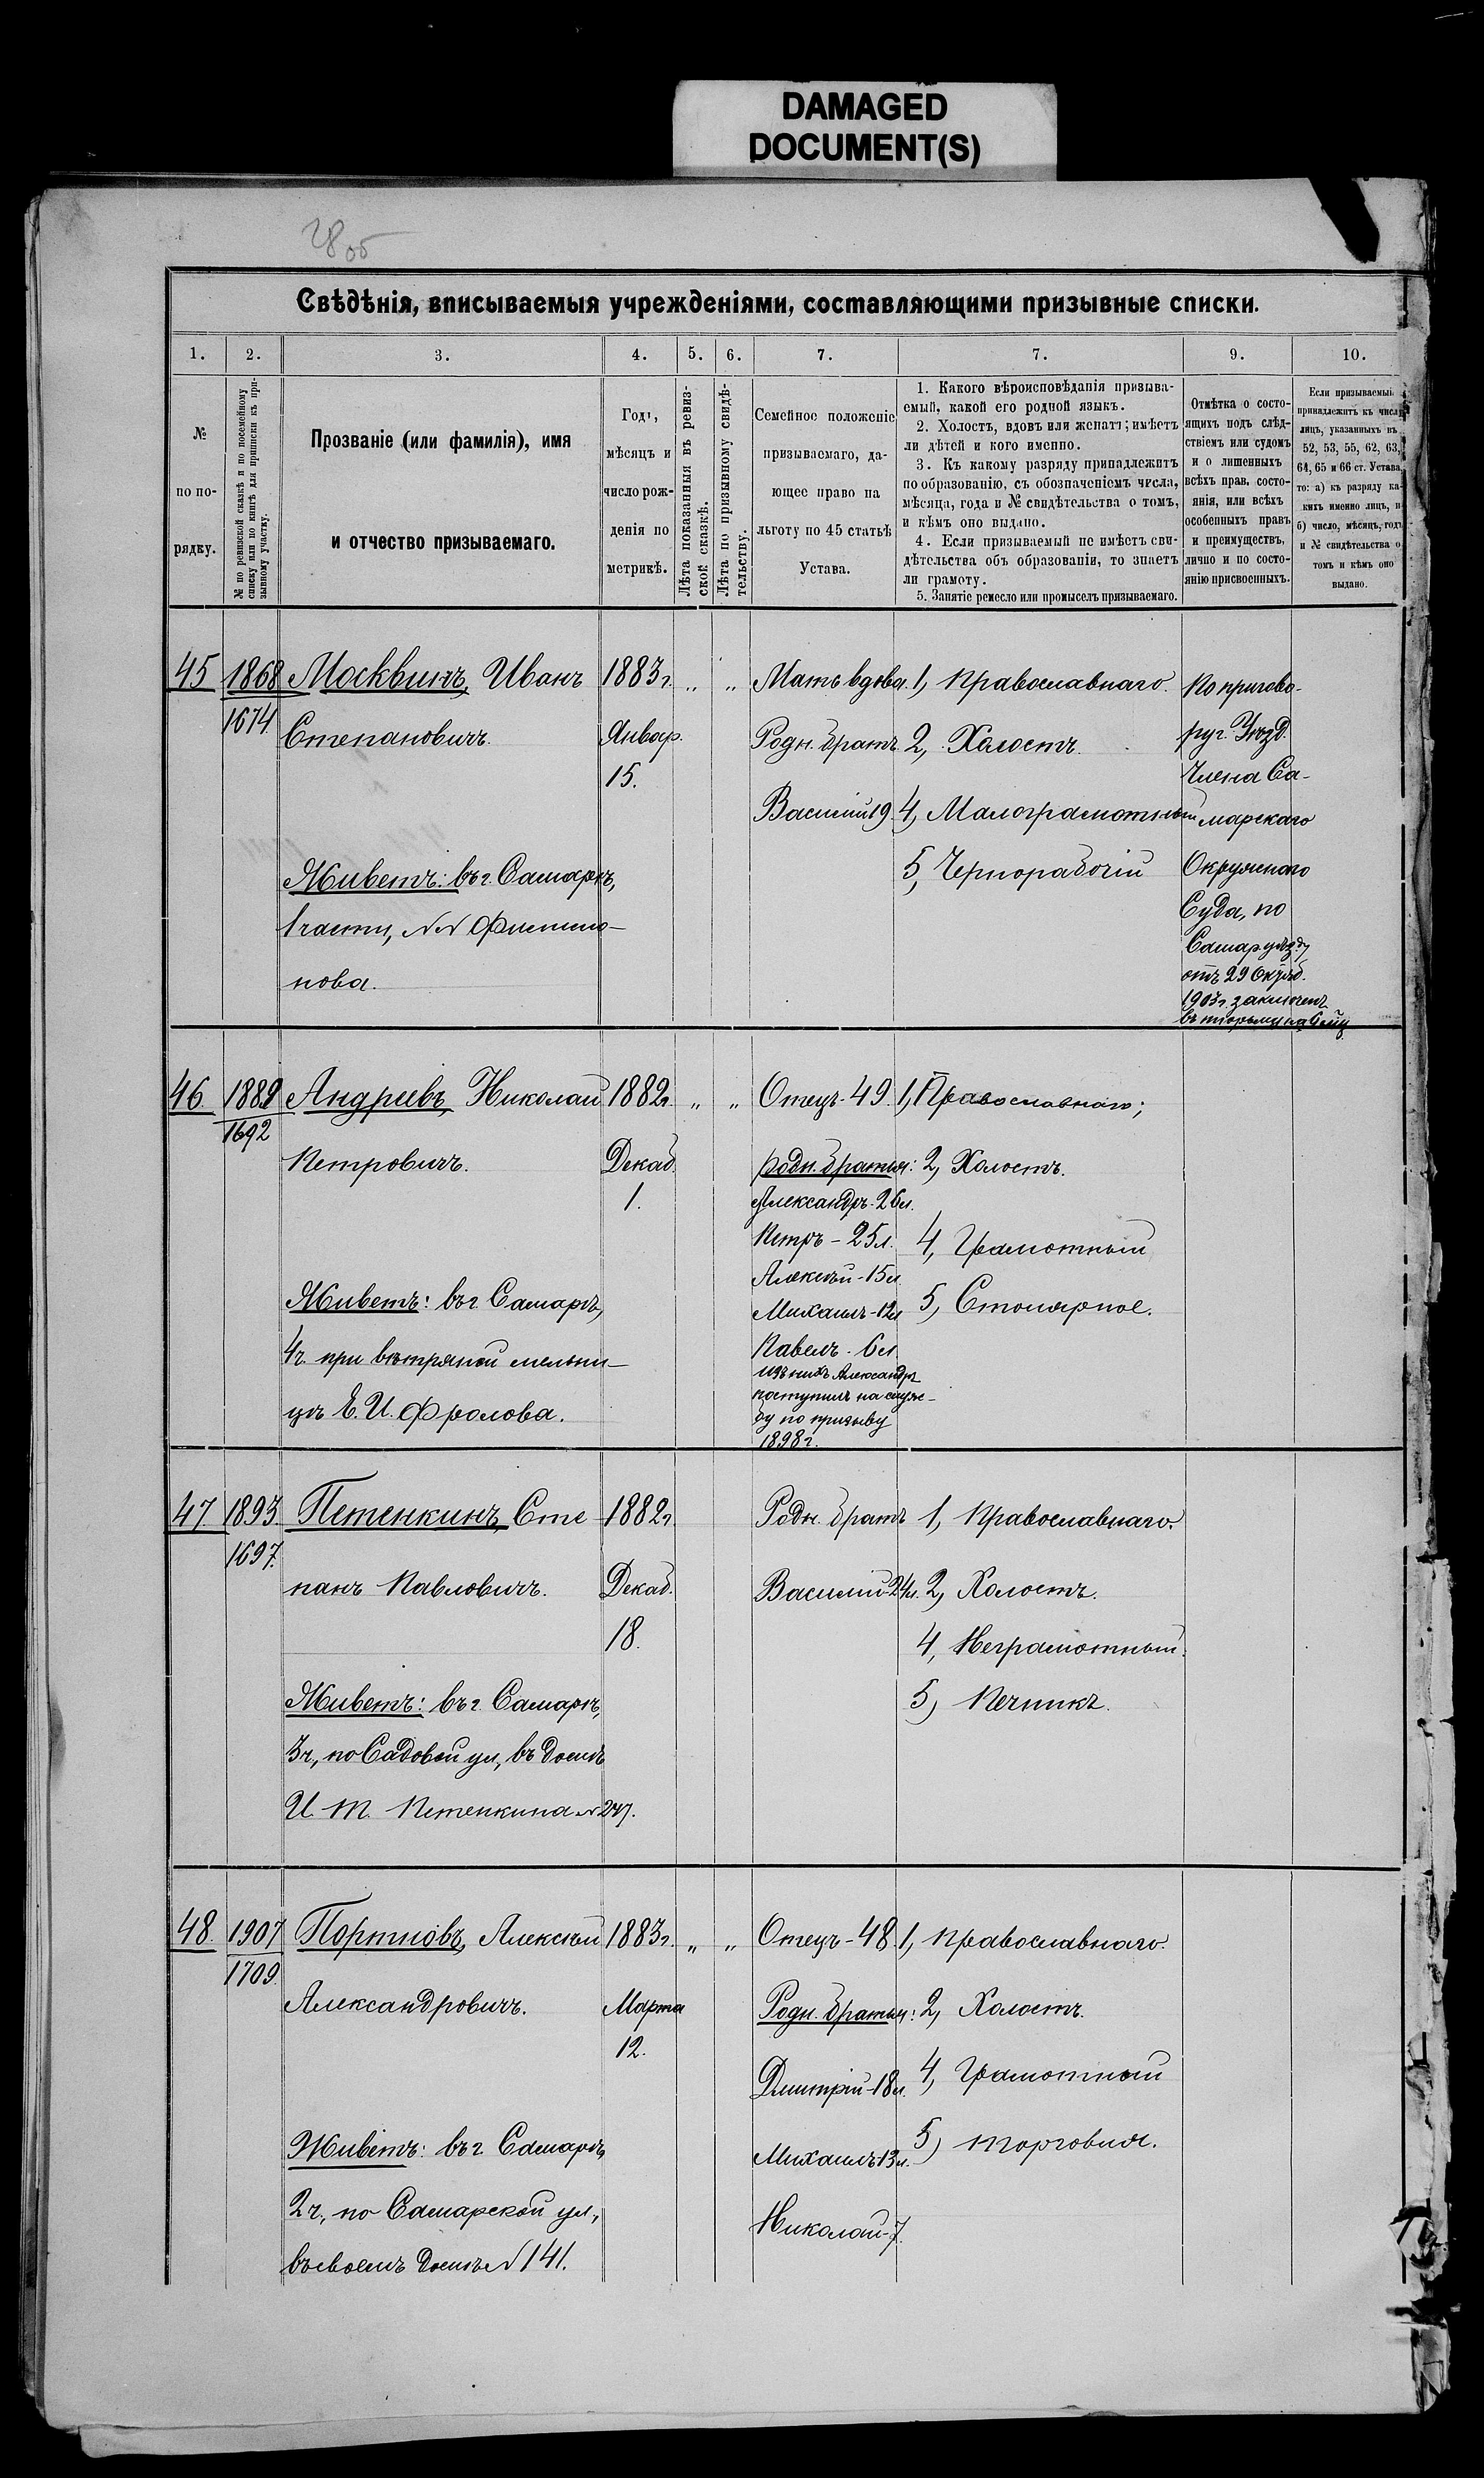 DAMAGED
DOCUMENT(S)
28 об
Свѣдѣнія, вписываемыя учрежденіями, составляющими призывные списки.
1. 2. 3. 4. 5. 6. 7. 7. 9. 10.
№
по по-
рядку.
№ по ревизской сказкѣ и по посемейному
списку или по книгѣ для приписки къ при-
зывному участку.
Прозваніе (или фамилія), имя
и отчество призываемаго.
Годъ,
мѣсяцъ и
число рож-
денія по
метрикѣ.
Лѣта показанныя въ ревиз-
ской сказкѣ.
Лѣта по призывному свидѣ-
тельству.
Семейное положеніе
призываемаго, да-
ющее право на
льготу по 45 статьѣ
Устава.
1. Какого вѣроисповѣданія призыва-
емый, какой его родной языкъ.
2. Холостъ, вдовъ или женатъ; имѣетъ
ли дѣтей и кого именно.
3. Къ какому разряду принадлежитъ
по образованію, съ обозначеніемъ числа,
мѣсяца, года и № свидѣтельства о томъ,
и кѣмъ оно выдано.
4. Если призываемый не имѣетъ сви-
дѣтельства объ образованіи, то знаетъ
ли грамоту.
5. Занятіе ремесло или промыселъ призываемаго.
Отмѣтка о состо-
ящихъ подъ слѣд-
ствіемъ или судомъ
и о лишенныхъ
всѣхъ прав. состо-
янія, или всѣхъ
особенныхъ правъ
и преимуществъ,
лично и по состо-
янію присвоенныхъ.
Если призываемый
принадлежитъ къ числу
лицъ, указанныхъ въ
52, 53, 55, 62, 63,
64, 65 и 66 ст. Устава,
то: а) къ разряду ка-
кихъ именно лицъ, и
б) число, мѣсяцъ, годъ
и № свидѣтельства о
томъ и кѣмъ оно
выдано.
45
1868
1674
Москвинъ, Иванъ
Степановичъ.
Живетъ: въ г. Самарѣ,
1 части,
нова.
1883 г.
Январ.
15.
„ „
Мать вдова.
Родн. братъ
Василій 19
1, Православнаго.
2, Холостъ.
4, Малограмотный
5, Чернорабочій
По пригово-
ру г. Уѣзд.
Члена Са-
марскаго
Окружного
Суда, по
Самар. уѣзду
отъ 29 Октяб.
1903 г. заключенъ
въ тюрьму на 6 мѣс.
46.
1889
1692
Андреевъ, Николай
Петровичъ.
Живетъ: въ г. Самарѣ,
4 ч. при вѣтряной мельни-
цѣ Е. И. Фролова.
1882 г.
Декаб.
1.
„ „
Отецъ - 49.
родн. братья:
Александръ - 26 л.
Петръ - 25 л.
Алексѣй - 15 л.
Михаилъ - 12 л.
Павелъ - 6 л.
Изъ нихъ Александръ
поступилъ на служ-
бу по призыву
1898 г.
1, Православнаго;
2, Холостъ.
4, Грамотный
5, Столярное.
47.
1893.
1697.
Петенкинъ, Сте-
панъ Павловичъ.
Живетъ: въ г. Самарѣ,
3 ч., по Садовой ул., въ домѣ
И. Т. Петенкина № 247.
1882 г.
Декаб.
18.
Родн. братъ
Василій - 24 л.
1, Православнаго.
2, Холостъ.
4, Неграмотный.
5, Печникъ.
48.
1907
1709.
Портновъ, Алексѣй
Александровичъ.
Живетъ: въ г. Самарѣ,
2 ч., по Самарской ул.,
въ своемъ домѣ № 141.
1883 г.
Марта
12.
„ „
Отецъ - 48.
Родн. братья:
Дмитрій - 18 л.
Михаилъ 13 л.
Николай - 7.
1, Православнаго.
2, Холостъ.
4, Грамотный
5, Торговля.